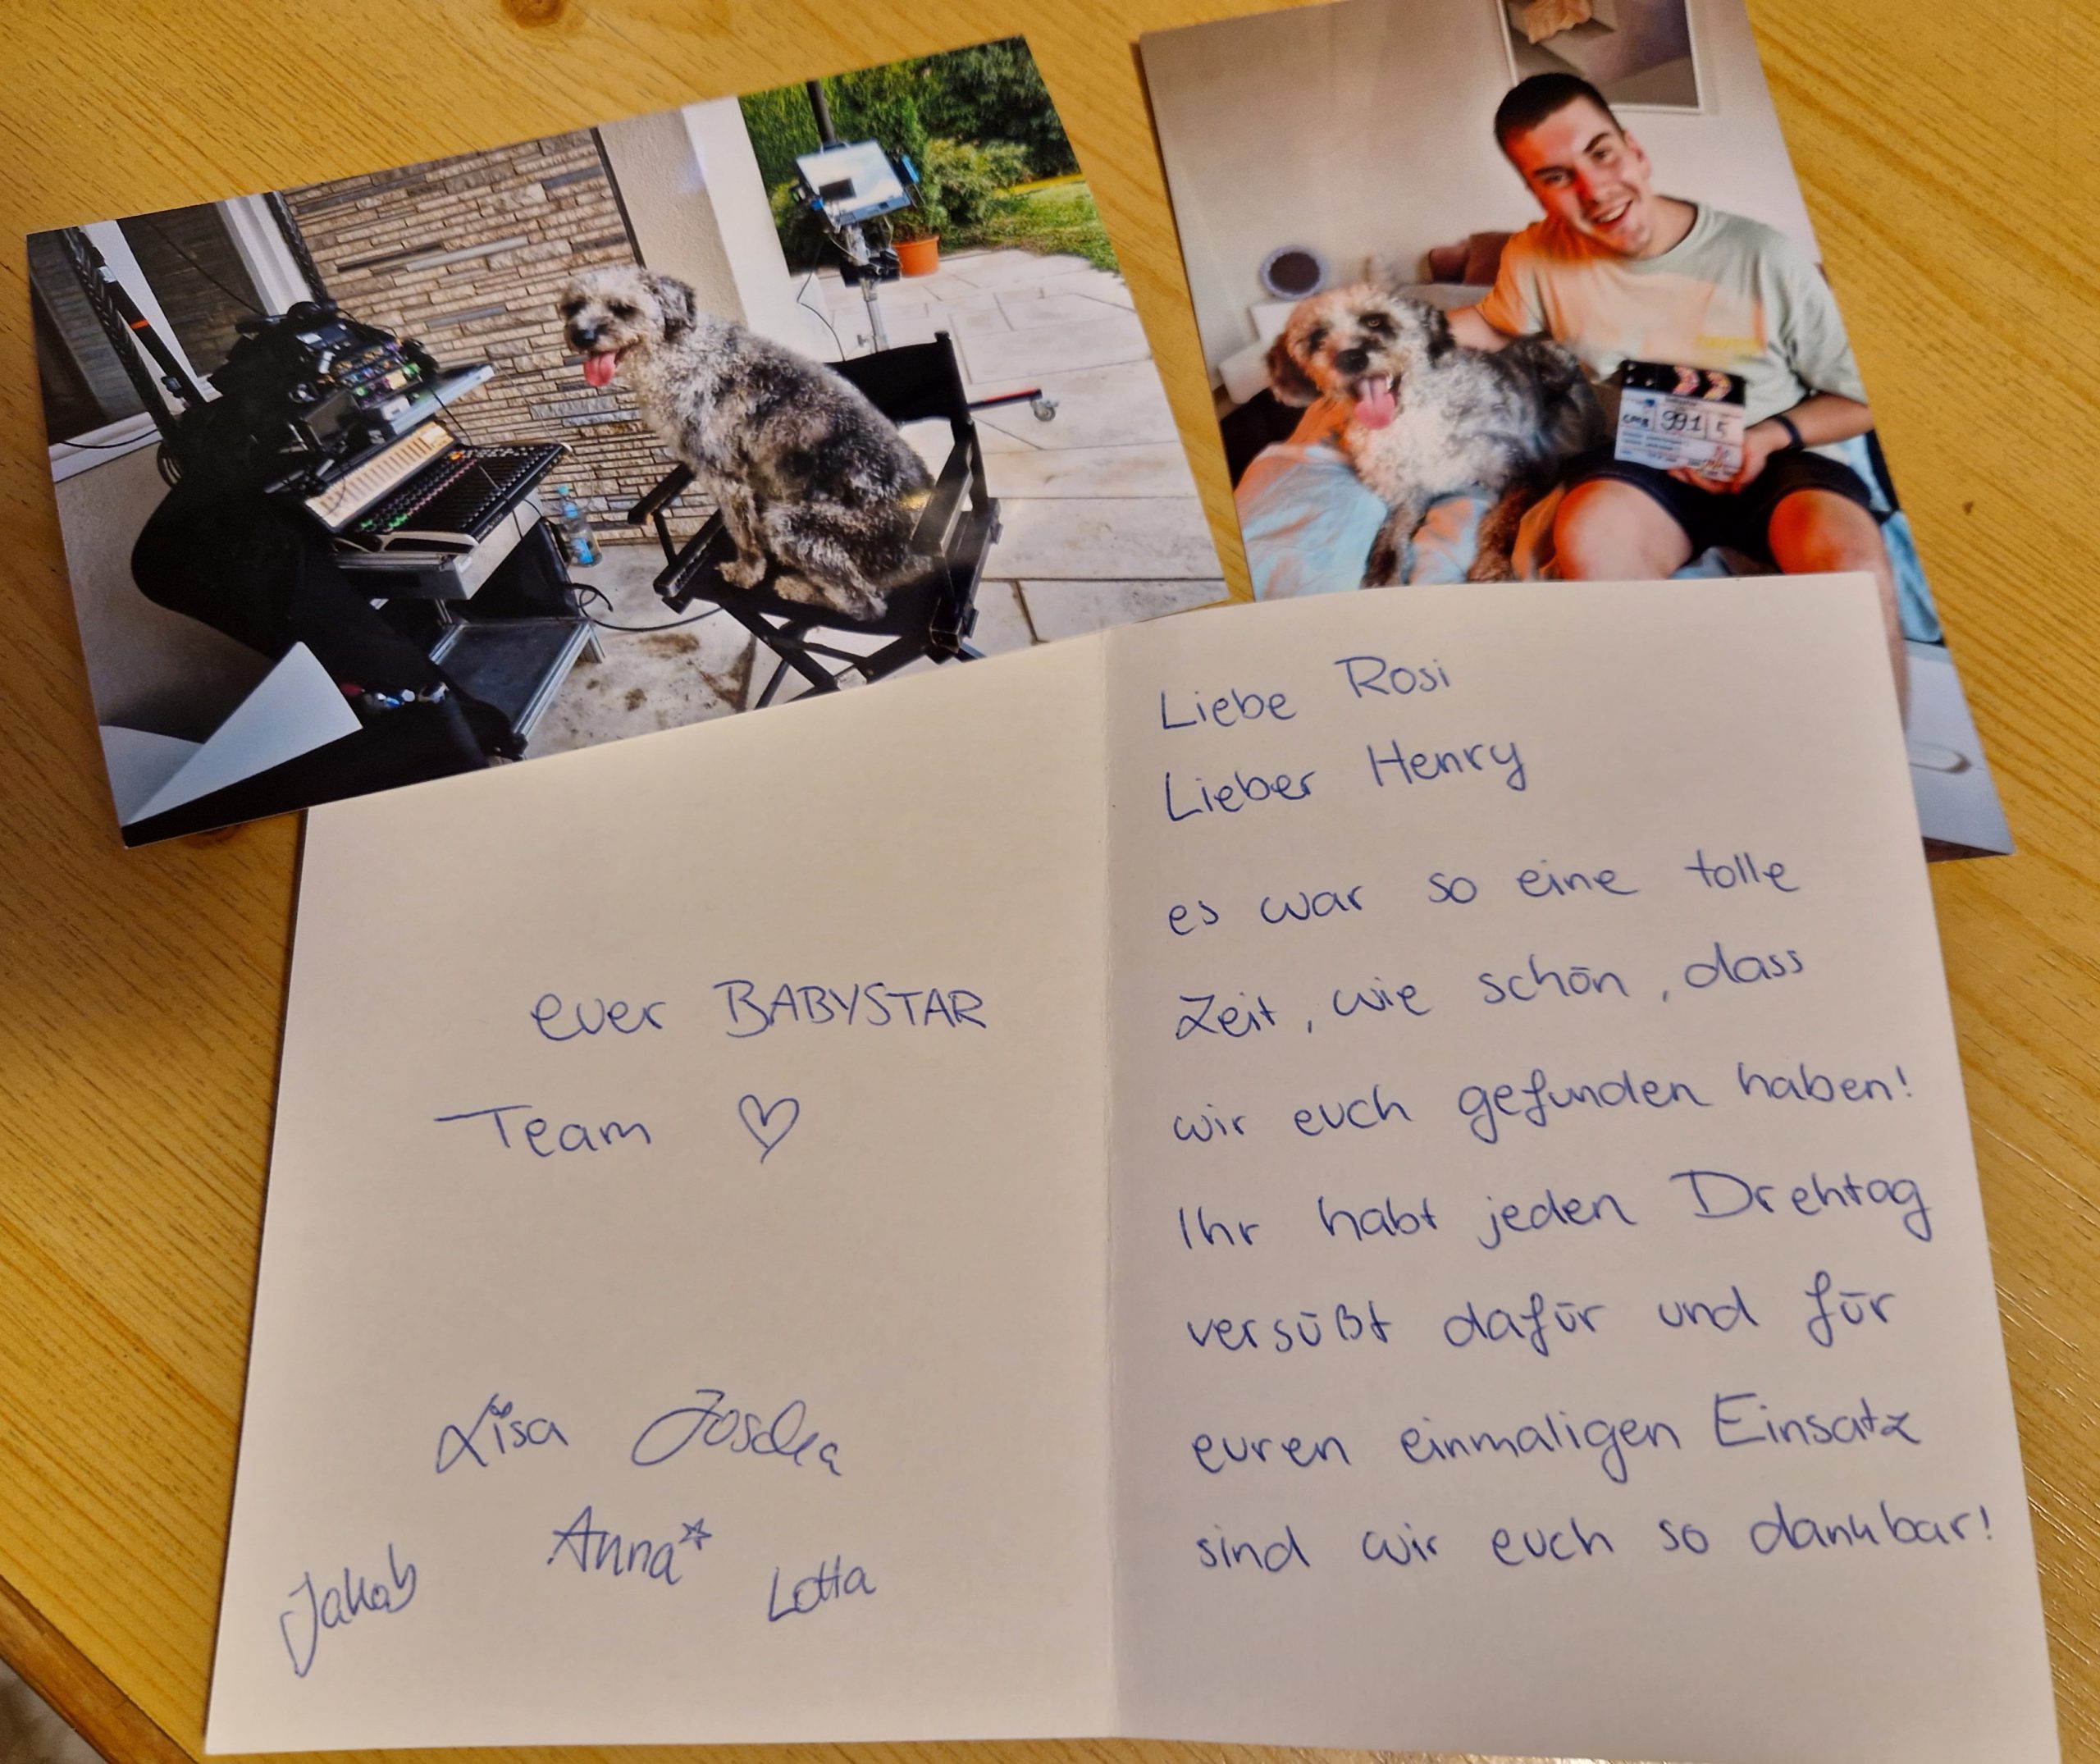 Liebe Rosi
Lieber Henry
es war so eine tolle
Zeit, wie schön, dass
wir euch gefunden haben!
Ihr habt jeden Drehtag
versüßt dafür und für
euren einmaligen Einsatz
sind wir euch so dankbar!
euer BABYSTAR
Team ♡
Lisa Joscha
Anna*
Jakob Lotta
991 5